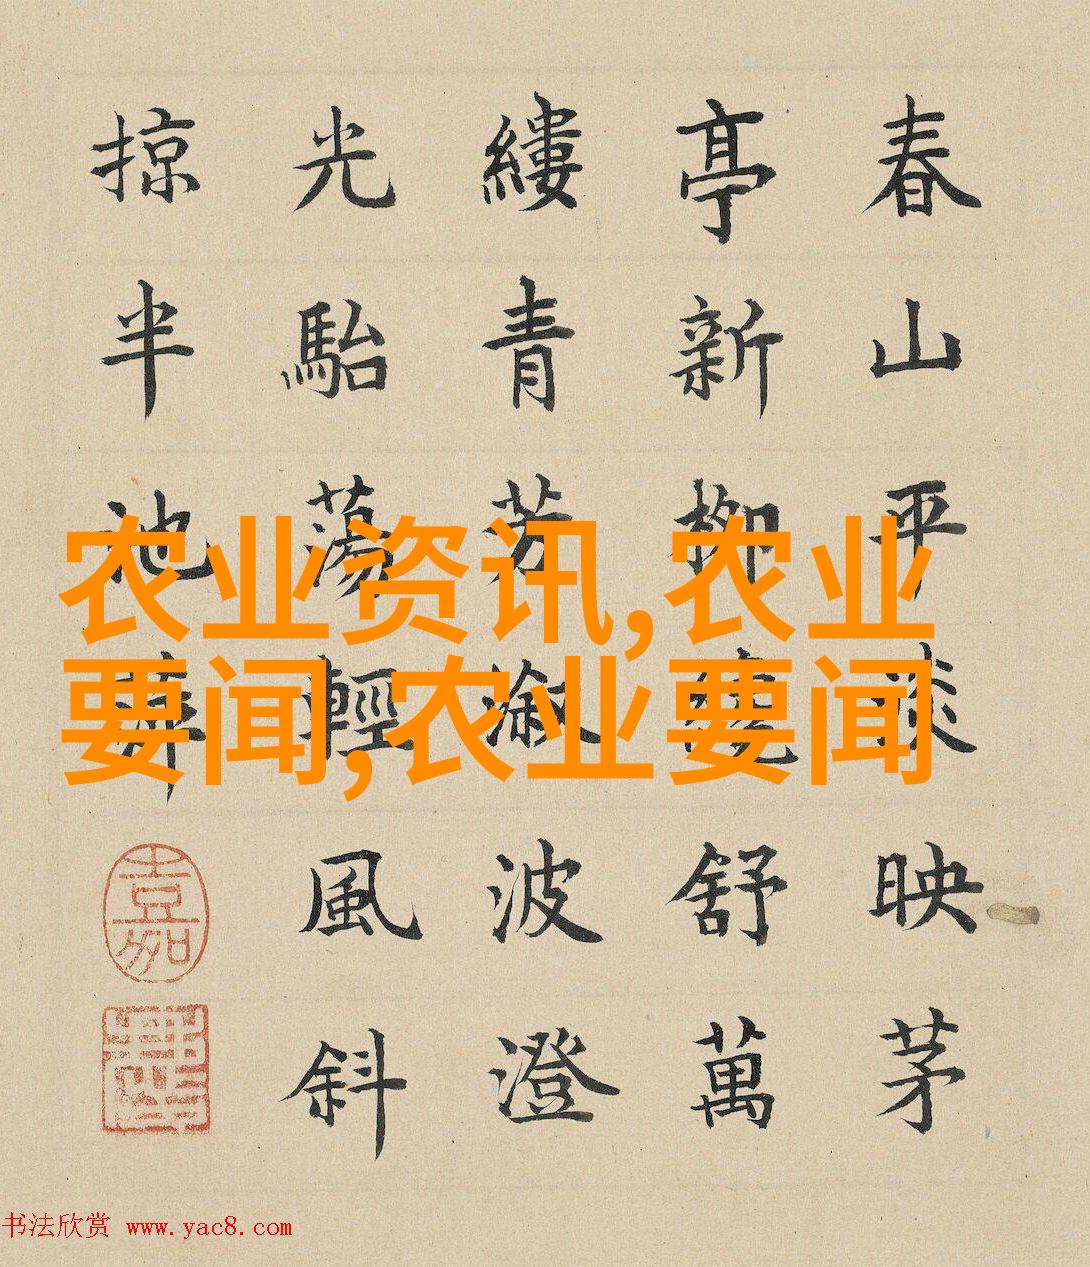 春山平映茅
亭新柳舒萬
縷青芳溆波澄
光駘蕩輕風斜
掠半池萍
嘉
农业资讯,农业
要闻,农业要闻
书法欣赏 www.yac8.com